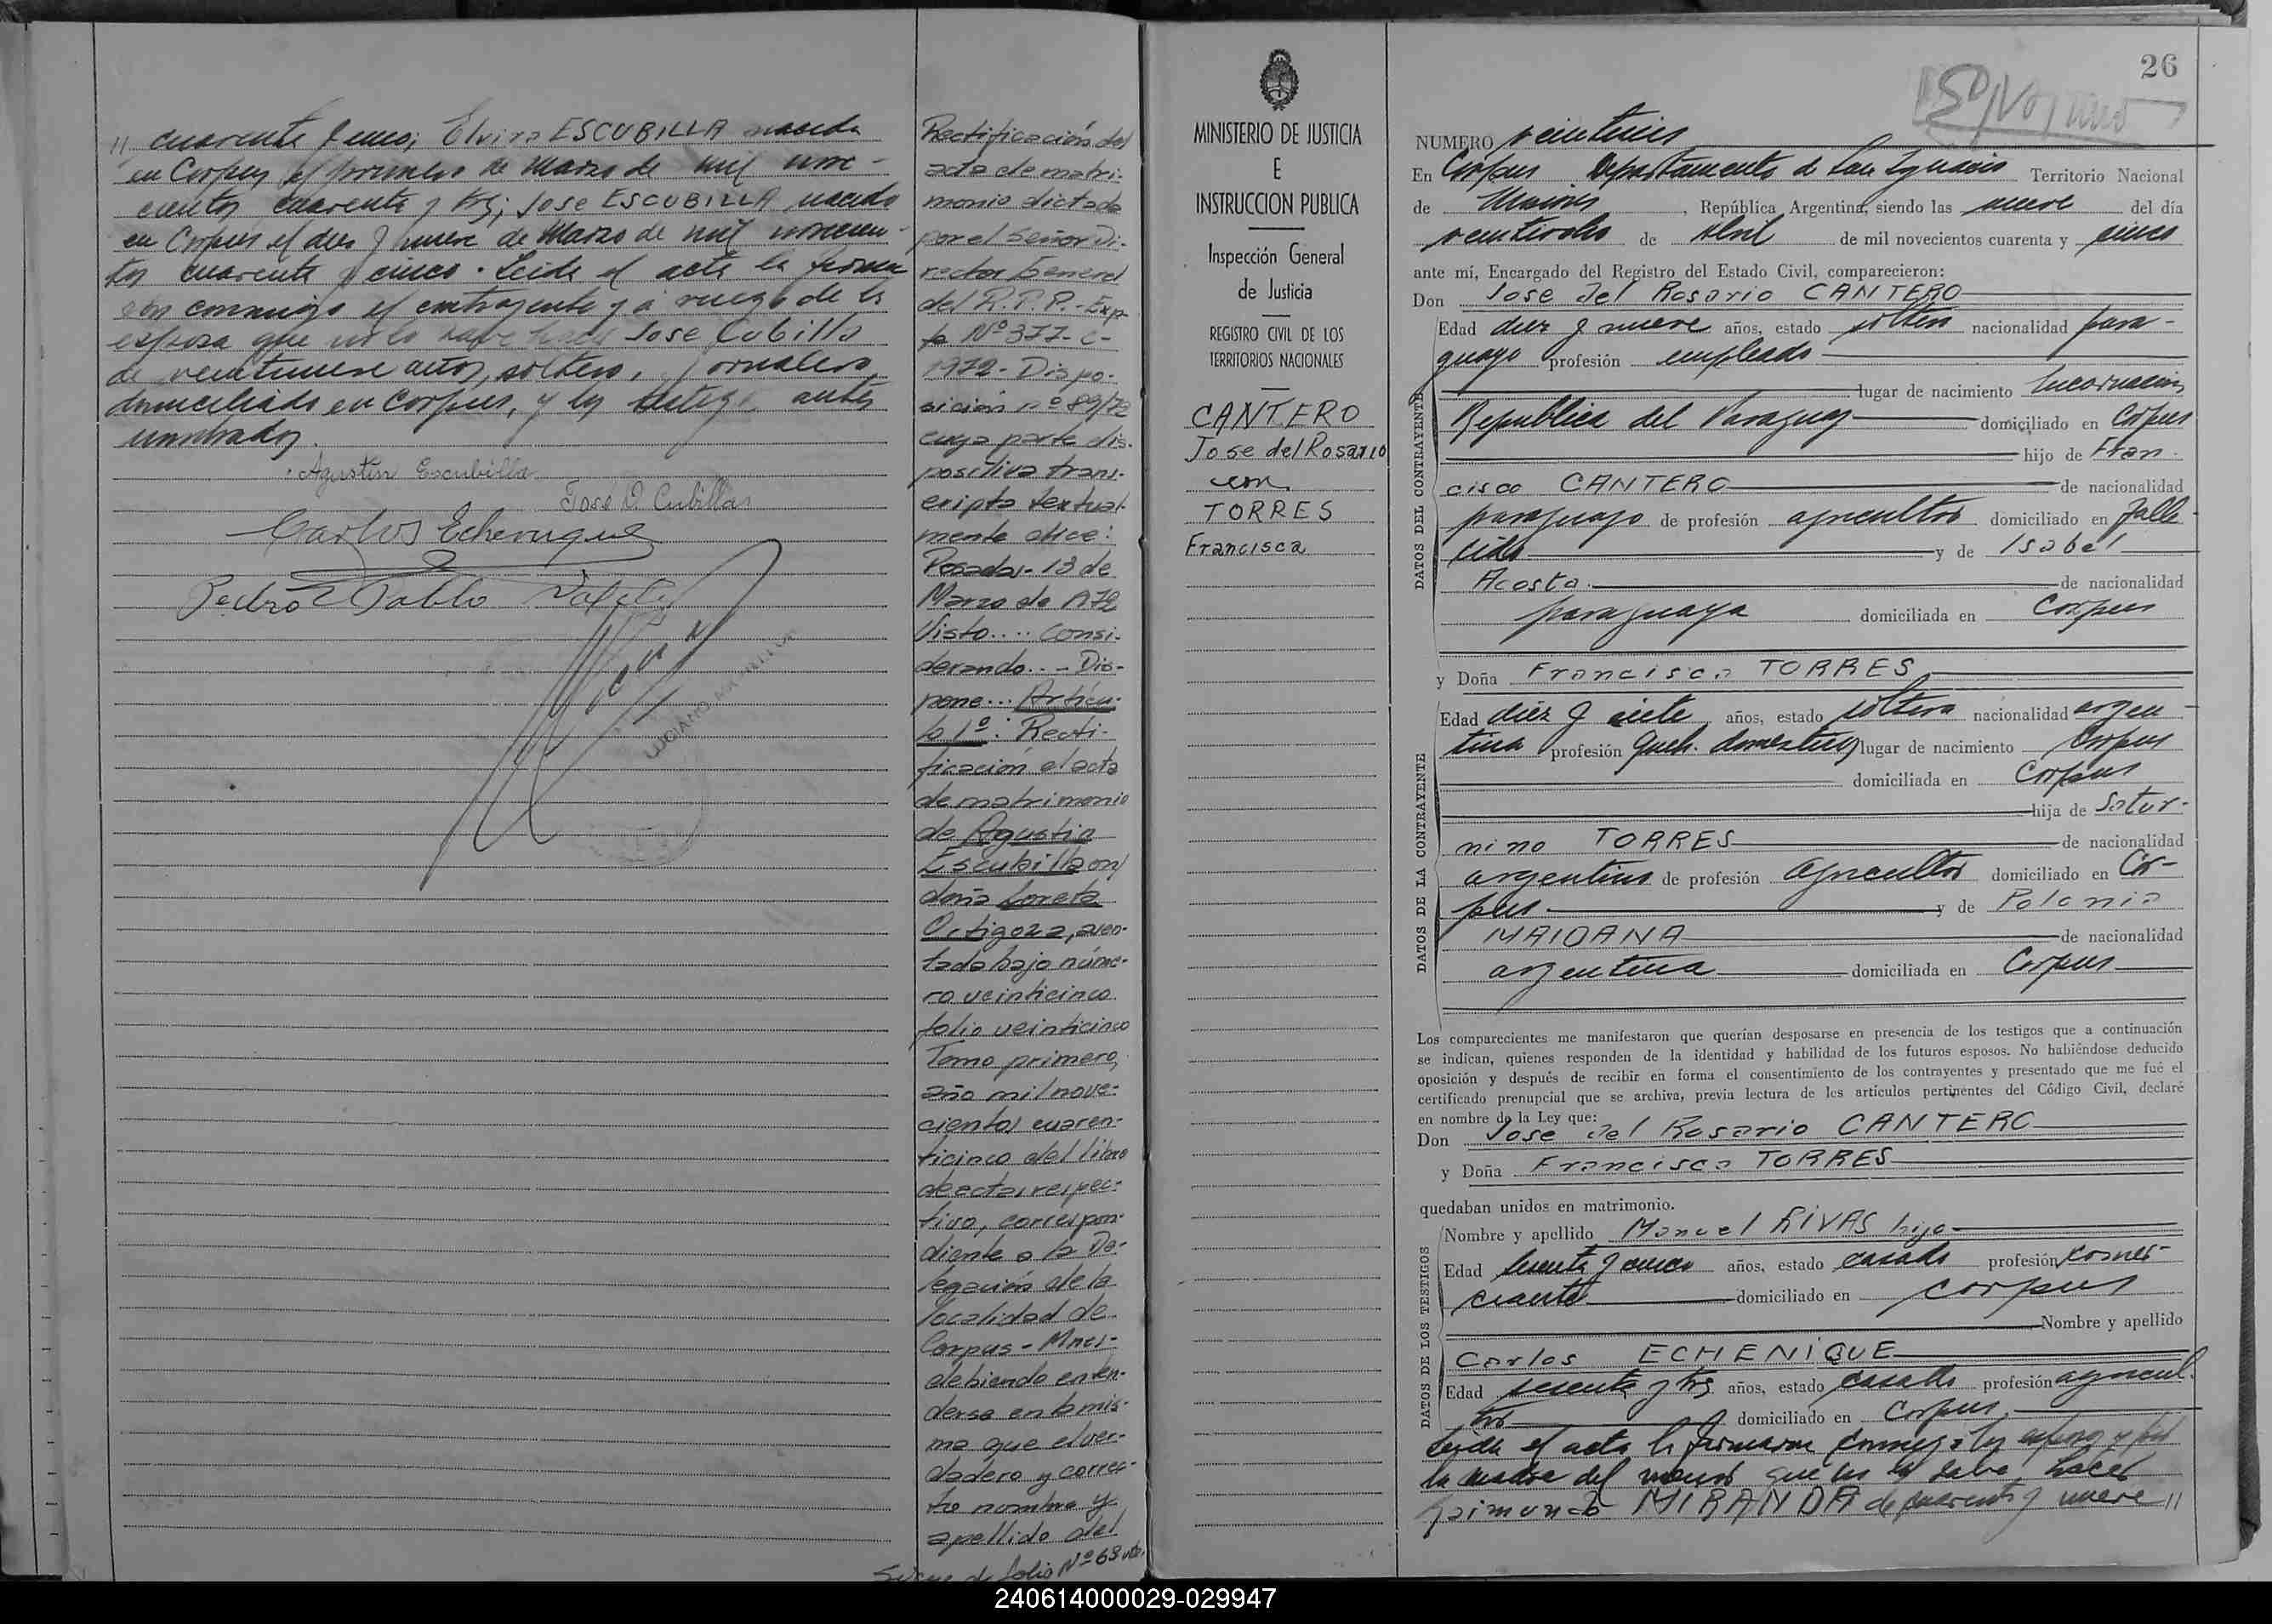 // cuarenta y uno; Elvira ESCUBILLA nacida
en Corpus el primero de Marzo de mil nove-
cientos cuarenta y tres; Jose ESCUBILLA nacido
en Corpus el dies y nueve de Marzo de mil novecien-
tos cuarenta y cinco. Leida el acta la firma
ron conmigo el contrayente y a ruego de la
esposa que no lo sabe hacer Jose Cubilla
de veintinueve años, soltero, jornalero,
domiciliado en Corpus, y los testigos antes
nombrados.
Agustin Escubilla
José D. Cubillas
Carlos Echenique
Pedro Pablo
LUCIANO
Rectificación del
acta de matri-
monio dictada
por el Señor Di-
rector General
del R.P.P.- Exp-
te Nº 377-C-
1972- Dispo-
sición nº 89/72
cuya parte dis-
positiva trans-
cripta textual-
mente dice:
Posadas- 13 de
Marzo de 1972
Visto.... Consi-
derando... - Dis-
pone... Artícu-
lo 1º: Recti-
ficación el acta
de matrimonio
de Agustin
Escubilla con
doña Loreta
Ortigoza, asen-
tada bajo núme-
ro veinticinco
folio veinticinco
Tomo primero,
año mil nove-
cientos cuaren-
ticinco del libro
de actas respec-
tivo, correspon-
diente a la De-
legación de la
localidad de
Corpus - Mnes-
debiendo enten-
derse en la mis-
ma que el ver-
dadero y correc-
to nombre y
apellido del
Sigue de folio Nº 63 vto.
MINISTERIO DE JUSTICIA
E
INSTRUCCION PUBLICA
Inspección General
de Justicia
REGISTRO CIVIL DE LOS
TERRITORIOS NACIONALES
CANTERO
Jose del Rosario
con
TORRES
Francisca
26
NUMERO veintiseis
En Corpus Departamento de San Ignacio Territorio Nacional
de Misiones, República Argentina, siendo las nueve del día
veintiocho de Abril de mil novecientos cuarenta y cinco
ante mí, Encargado del Registro del Estado Civil, comparecieron:
Don Jose del Rosario CANTERO
DATOS DEL CONTRAYENTE
Edad diez y nueve años, estado soltero nacionalidad para-
guayo profesión empleado
lugar de nacimiento Encarnacion
Republica del Paraguay domiciliado en Corpus
hijo de Fran-
cisco CANTERO de nacionalidad
paraguayo de profesión agricultor domiciliado en falle-
cido y de Isabel
Acosta. de nacionalidad
paraguaya domiciliada en Corpus
y Doña Francisca TORRES
DATOS DE LA CONTRAYENTE
Edad diez y siete años, estado soltera nacionalidad argen-
tina profesión queh. domesticos lugar de nacimiento Corpus
domiciliada en Corpus
hija de Satur-
nino TORRES de nacionalidad
argentino de profesión agricultor domiciliado en Cor-
pus y de Polonia
MAIDANA de nacionalidad
argentina domiciliada en Corpus
Los comparecientes me manifestaron que querían desposarse en presencia de los testigos que a continuación
se indican, quienes responden de la identidad y habilidad de los futuros esposos. No habiéndose deducido
oposición y después de recibir en forma el consentimiento de los contrayentes y presentado que me fué el
certificado prenupcial que se archiva, previa lectura de los artículos pertinentes del Código Civil, declaré
en nombre de la Ley que:
Don Jose del Rosario CANTERO
y Doña Francisca TORRES
quedaban unidos en matrimonio.
DATOS DE LOS TESTIGOS
Nombre y apellido Manuel RIVAS hijo
Edad sesenta y cinco años, estado casado profesión comer-
ciante domiciliado en Corpus
Nombre y apellido
Carlos ECHENIQUE
Edad sesenta y tres años, estado casado profesión agricul-
tor domiciliado en Corpus.
Leida el acta la firmaron conmigo los esposos y por
la madre del menor que no lo sabe hacer
Raimundo MIRANDA de cuarenta y nueve //
240614000029-029947